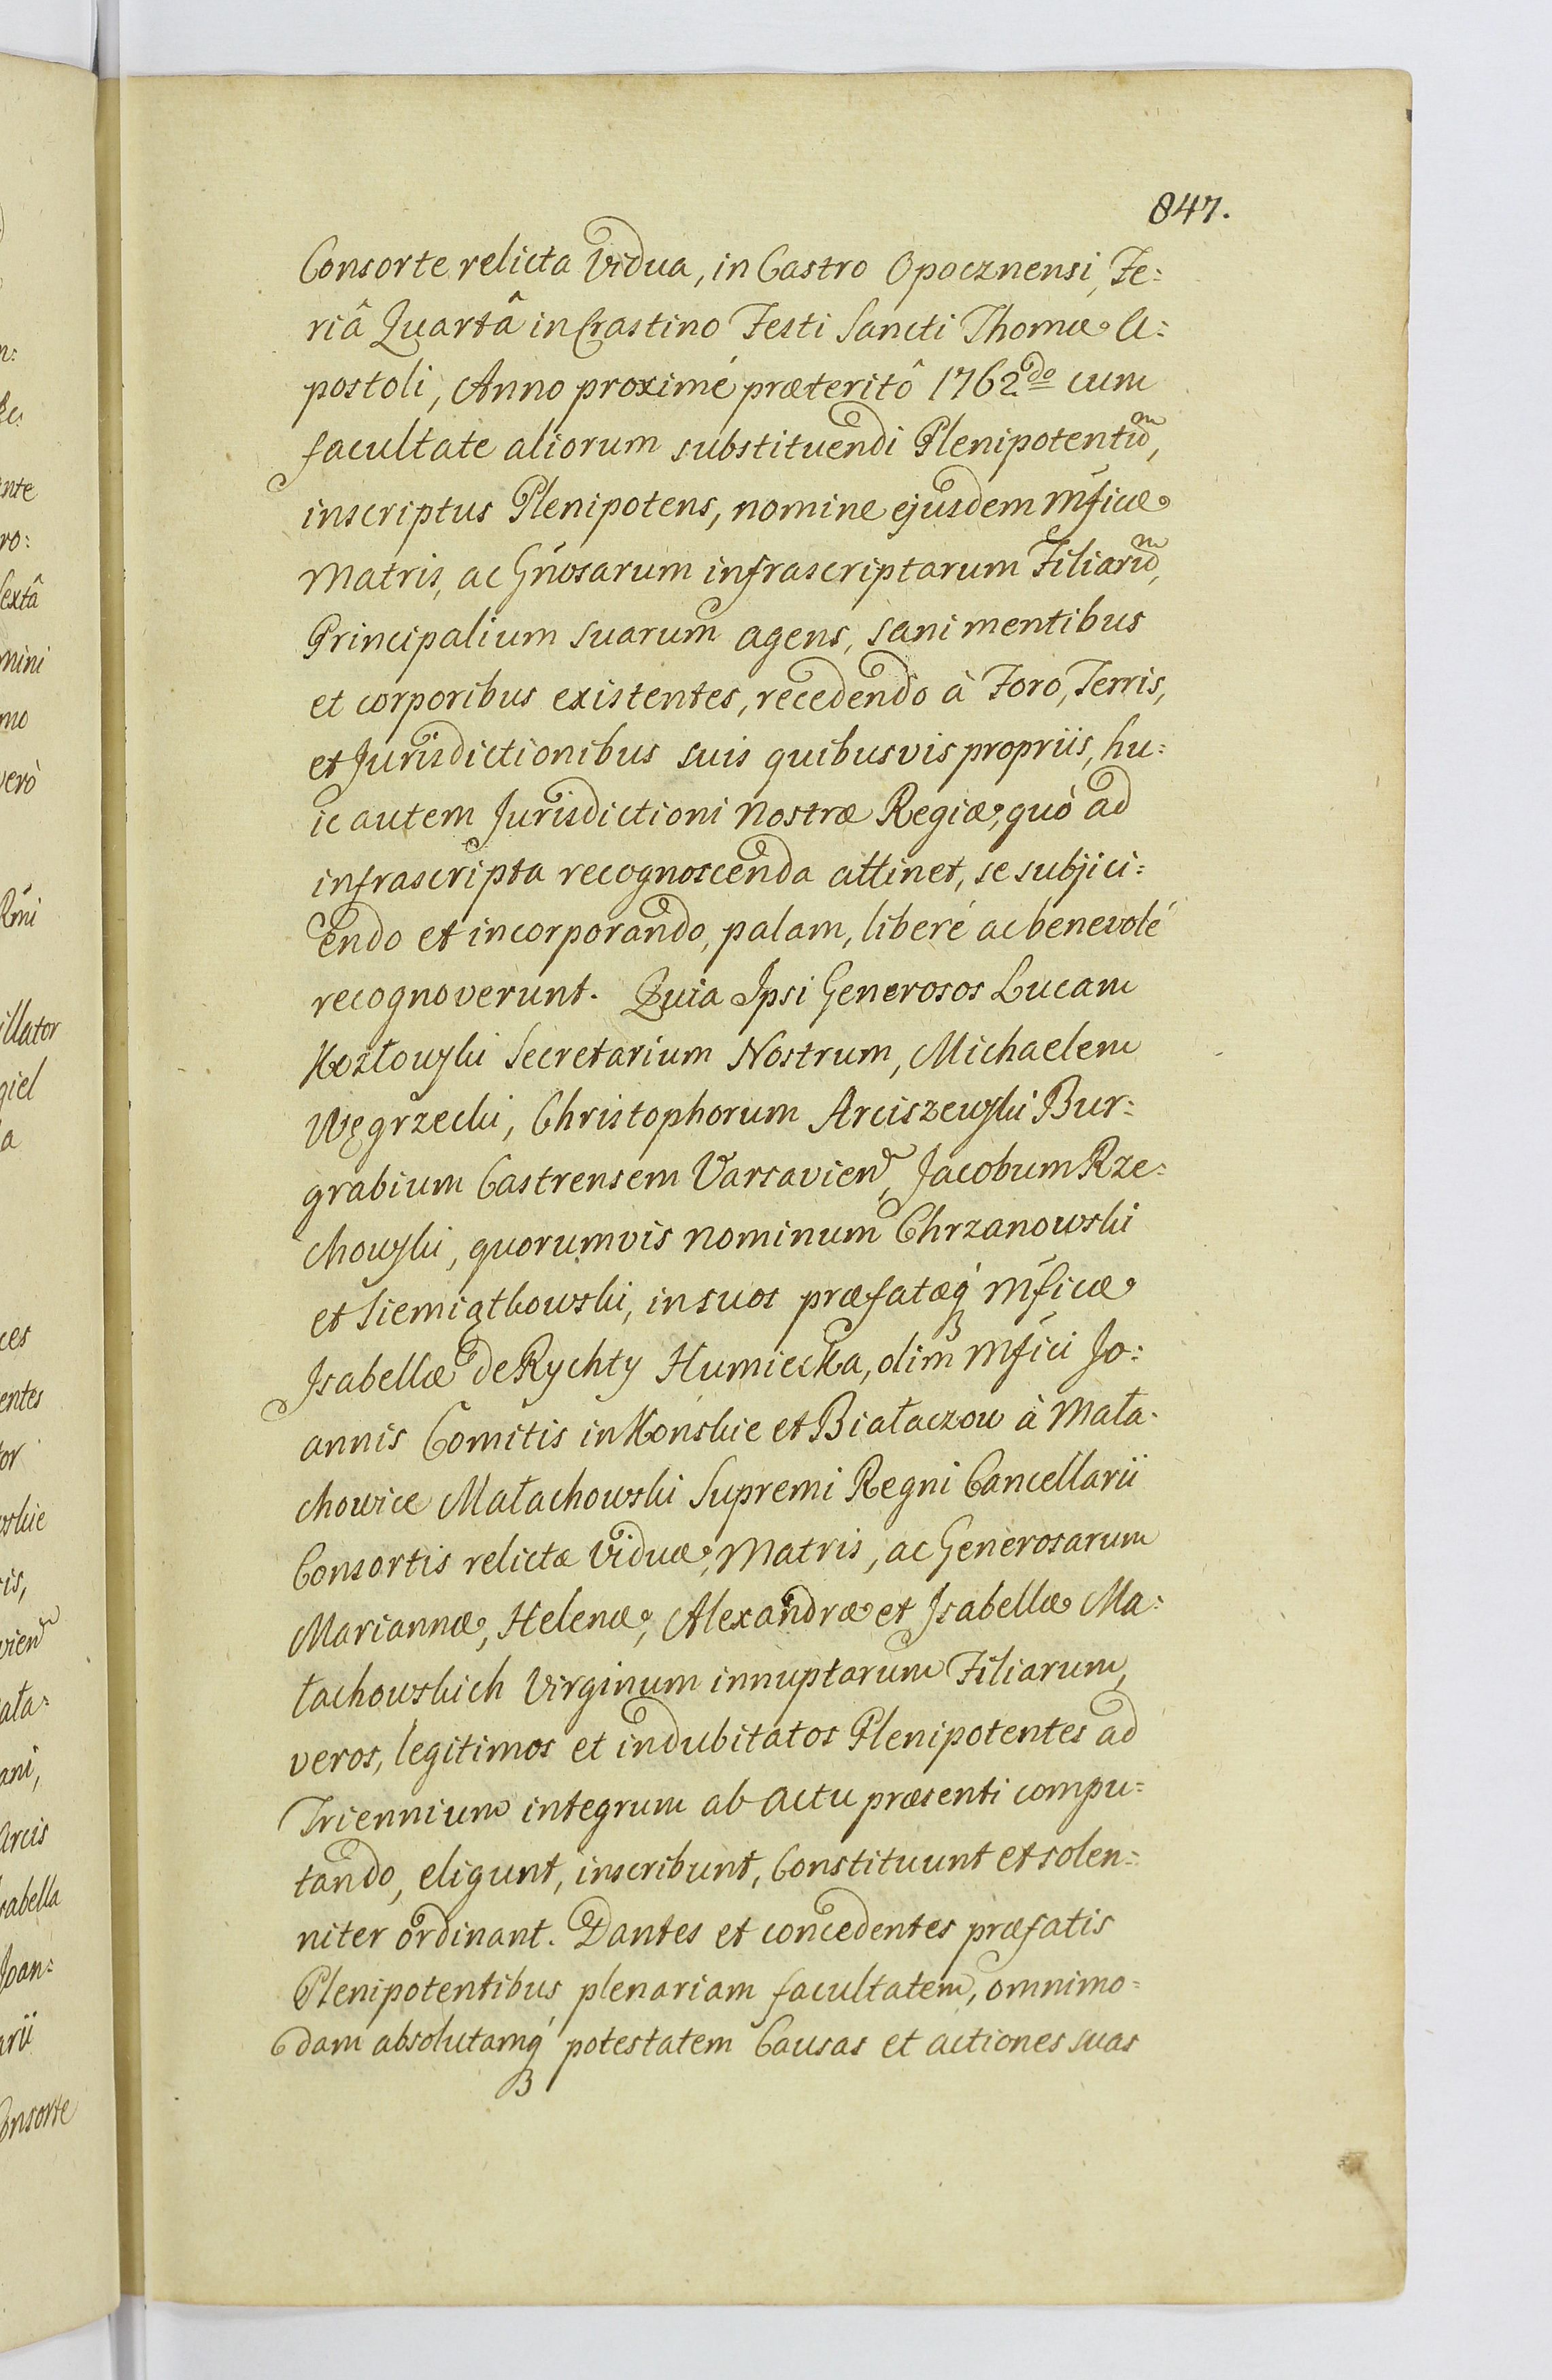 847.
Consorte relicta Vidua, in Castro Opocznensi, Fe:
riâ Quartâ in Crastino Festi Sancti Thomæ A:
postoli, Anno proximé præteritô 1762do cum
facultate aliorum substituendi Plenipotentiũm,
inscriptus Plenipotens, nomine ejusdem Mficæ
Matris, ac Gnosarum infrascriptarum Filiarũm,
Principalium suarum agens, sani mentibus
et corporibus existentes, recedendo à Foro, Terris,
et Jurisdictionibus suis quibusvis propriis, hu:
ic autem Jurisdictioni Nostræ Regiæ, quò ad
infrascripta recognoscenda attinet, se subjici:
endo et incorporando, palam, liberé ac benevolé
recognoverunt. Quia Ipsi Generosos Lucam
Kozłowski Secretarium Nostrum, Michaelem
Węgrzecki, Christophorum Arciszewski Bur:
grabium Castrensem Varsavien, Jacobum Rze:
chowski, quorumvis nominum Chrzanowski
et Siemiątkowski, in suos præfatæq́ Mficæ
Isabellæ de Rychty Humiecka, olim Mfici Jo:
annis Comitis in Konskie et Białaczow à Mała:
chowice Małachowski Supremi Regni Cancellarii
Consortis relictæ Viduæ, Matris, ac Generosarum
Mariannæ, Helenæ, Alexandræ et Isabellæ Ma:
łachowskich Virginum innuptarum Filiarum,
veros, legitimos et indubitatos Plenipotentes ad
Triennium integrum ab actu præsenti compu:
tando, eligunt, inscribunt, Constituunt et solen:
niter ordinant. Dantes et concedentes præfatis
Plenipotentibus plenariam facultatem, omnimo:
dam absolutamq́ potestatem Causas et actiones suas